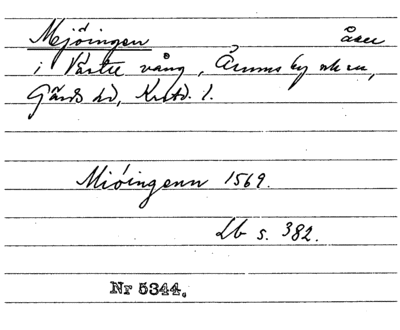 Mjöingen åker
i Västre vång, Årums by ok sn,
Gärds hd, Krstd. l.
Mióingenn 1569.
Lb s. 382.
Nr 5344.